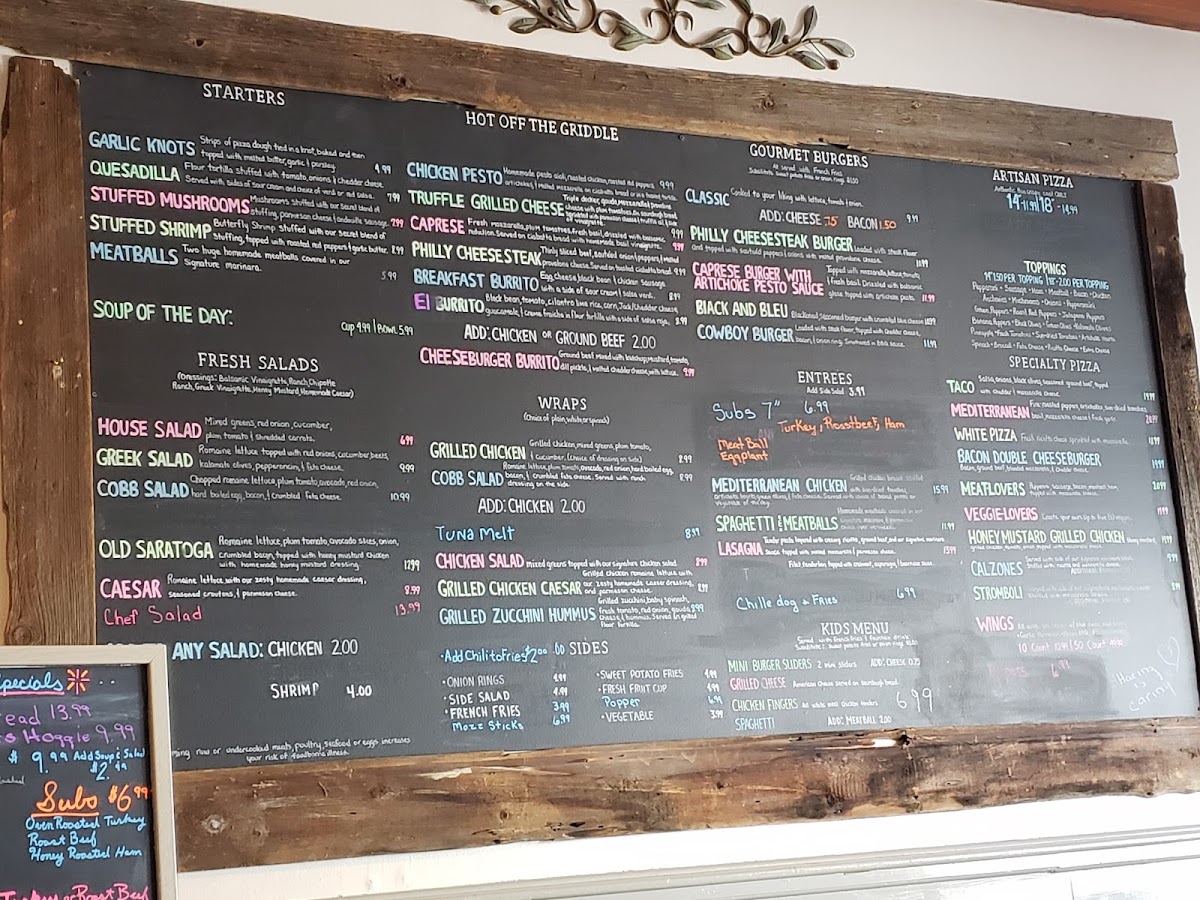 STARTERS
GARLIC KNOTS Strips of pizza dough tied in a knot, baked and then
topped with melted butter, garlic & parsley. 4.99
QUESADILLA Flour tortilla stuffed with tomato, onions & cheddar cheese.
Served with sides of sour cream and choice of verd or red salsa. 7.99
STUFFED MUSHROOMS Mushrooms stuffed with our secret blend of
stuffing, parmesan cheese & andouille sausage. 7.99
STUFFED SHRIMP Butterfly Shrimp stuffed with our secret blend of
stuffing, topped with roasted red peppers & garlic butter. 8.99
MEATBALLS Two huge homemade meatballs covered in our
Signature marinara. 5.99
SOUP OF THE DAY:
Cup 4.99 / Bowl 5.99
FRESH SALADS
(Dressings: Balsamic Vinaigrette, Ranch, Chipotle
Ranch, Greek Vinaigrette, Honey Mustard, Homemade Caesar)
HOUSE SALAD Mixed greens, red onion, cucumber,
plum tomato & shredded carrots. 6.99
GREEK SALAD Romaine lettuce topped with red onions, cucumber, beets,
kalamata olives, pepperoncini, & feta cheese. 9.99
COBB SALAD Chopped romaine lettuce, plum tomato, avocado, red onion,
hard boiled egg, bacon, & crumbled feta cheese. 10.99
OLD SARATOGA Romaine lettuce, plum tomato, avocado slices, onion,
crumbled bacon, topped with honey mustard chicken
with homemade honey mustard dressing. 12.99
CAESAR Romaine lettuce with our zesty homemade caesar dressing,
seasoned croutons, & parmesan cheese. 8.99
Chef Salad 13.99
ANY SALAD: CHICKEN 2.00
SHRIMP 4.00
ming raw or undercooked meats, poultry, seafood or eggs increases
your risk of foodborne illness.
HOT OFF THE GRIDDLE
CHICKEN PESTO Homemade pesto aioli, roasted chicken, roasted red peppers,
artichokes, & melted mozzarella on ciabatta bread or in a tomato tortilla. 9.99
TRUFFLE GRILLED CHEESE Triple decker, gouda, mozzarella, & provolone
cheese with plum tomatoes, on sourdough bread
CAPRESE Fresh mozzarella, plum tomatoes, fresh basil, dressed with balsamic
reduction. Served on ciabatta bread with homemade basil vinaigrette. 9.99
PHILLY CHEESESTEAK Thinly sliced beef, sautéed onion & peppers, & melted
provolone cheese. Served on toasted ciabatta bread. 9.99
BREAKFAST BURRITO Egg, cheese, black bean & chicken sausage
with a side of sour cream & salsa verdi. 8.99
El BURRITO Black bean, tomato, cilantro lime rice, corn, Jack/Cheddar Cheese,
guacamole, & creme fraiche in flour tortilla with a side of salsa roja. 8.99
ADD: CHICKEN OR GROUND BEEF 2.00
CHEESEBURGER BURRITO Ground beef mixed with ketchup, mustard, tomato,
dill pickle, & melted cheddar cheese, with lettuce. 9.99
WRAPS
(Choice of plain, white or spinach)
GRILLED CHICKEN Grilled chicken, mixed greens, plum tomato,
& cucumber. (choice of dressing on side) 8.99
COBB SALAD Romaine lettuce, plum tomato, avocado, red onion, hard boiled egg,
bacon, & crumbled feta cheese. Served with ranch
dressing on the side. 8.99
ADD: CHICKEN 2.00
Tuna Melt 8.99
CHICKEN SALAD mixed greens topped with our signature chicken salad. 8.99
GRILLED CHICKEN CAESAR Grilled chicken romaine lettuce with
our zesty homemade caesar dressing,
and parmesan cheese. 8.99
GRILLED ZUCCHINI HUMMUS Grilled zucchini, baby spinach,
fresh tomato, red onion, gouda
cheese, & hummus. Served in grilled
flour tortilla. 8.99
• Add Chili to Fries $2.00 SIDES
• ONION RINGS 4.99
• SIDE SALAD 4.99
• FRENCH FRIES 3.99
Mozz Sticks 6.99
• SWEET POTATO FRIES 4.99
• FRESH FRUIT CUP 4.99
Popper 6.99
• VEGETABLE 3.99
GOURMET BURGERS
All served with French Fries
Substitute sweet potato fries or onion rings $1.50
CLASSIC Cooked to your liking with lettuce, tomato & onion. 9.99
ADD: CHEESE .75 BACON 1.50
PHILLY CHEESESTEAK BURGER Loaded with steak, flavor
and topped with sautéed peppers & onions with melted provolone cheese. 11.99
CAPRESE BURGER WITH
ARTICHOKE PESTO SAUCE Topped with mozzarella, lettuce, tomato,
& fresh basil. Drizzled with balsamic
glaze, topped with artichoke pesto. 11.99
BLACK AND BLEU Blackened, seasoned burger with crumbled blue cheese 10.99
COWBOY BURGER Loaded with steak flavor, topped with cheddar cheese,
bacon, & onion ring. Smothered in BBQ sauce. 11.99
ENTREES
Add Side Salad 3.99
Subs 7" 6.99
Turkey, Roastbeef, Ham
Meat Ball
Eggplant
MEDITERRANEAN CHICKEN 15.99
SPAGHETTI & MEATBALLS 11.99
LASAGNA Tender pasta layered with creamy ricotta, ground beef, and our signature marinara
sauce topped with melted mozzarella & parmesan cheese. 13.99
Chille dog & Fries 6.99
KIDS MENU
Served with french fries & fountain drink.
MINI BURGER SLIDERS 2 mini Sliders ADD: CHEESE 0.75
GRILLED CHEESE American Cheese served on sourdough bread.
CHICKEN FINGERS All white meat chicken tenders 6.99
SPAGHETTI ADD: MEATBALL 2.00
ARTISAN PIZZA
14" 11.99 | 18" - 14.99
TOPPINGS
14" 1.50 PER TOPPING | 18" - 2.00 PER TOPPING
Pepperoni • Sausage • Ham • Meatball • Bacon • Chicken
Anchovies • Mushrooms • Onions • Pepperoncini
Green Peppers • Roast Red Peppers • Jalapeno Peppers
Banana Peppers • Black Olives • Green Olives • Kalamata Olives
Pineapple • Fresh Tomatoes • Sundried Tomatoes • Artichoke Hearts
Spinach • Broccoli • Feta Cheese • Ricotta Cheese • Extra Cheese
SPECIALTY PIZZA
TACO Salsa, onions, black olives, seasoned ground beef, topped
with cheddar & mozzarella cheese. 19.99
MEDITERRANEAN Fire-roasted peppers, artichokes, sun-dried tomatoes,
basil, mozzarella cheese, & fresh garlic. 20.99
WHITE PIZZA Fresh ricotta cheese sprinkled with mozzarella. 18.99
BACON DOUBLE CHEESEBURGER
Bacon, ground beef, blended mozzarella, & cheddar cheese. 19.99
MEATLOVERS 20.99
VEGGIE-LOVERS Create your own. Up to five (5) veggies. 19.99
HONEY MUSTARD GRILLED CHICKEN 19.99
CALZONES
STROMBOLI
WINGS
10 Count
6.99
Haring
is
carin'
Specials
read 13.99
s Hoggie 9.99
$ 9.99 Add Soup & Salad
$2.99
Subs $6.99
Oven Roasted Turkey
Roast Beef
Honey Roasted Ham
Turkey or Roast Beef